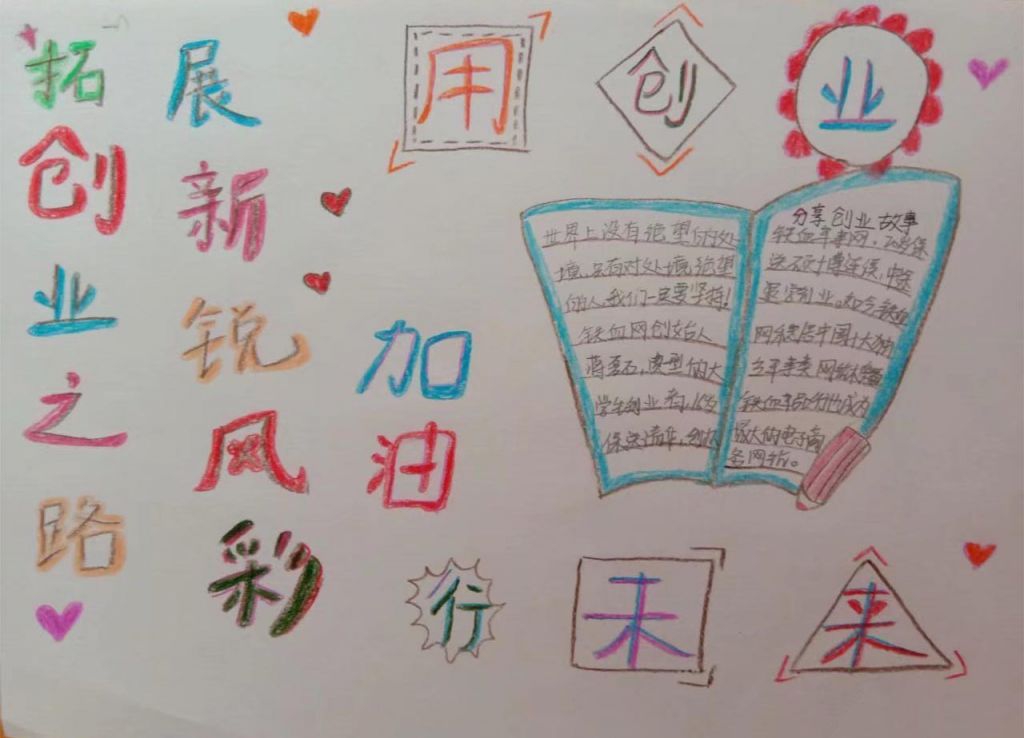 拓创业之路
展新锐风彩
加油
用创业
行未来
世界上没有绝望的处
境,只有对处境绝望
的人,我们一定要坚持!
铁血网创始人
蒋磊,典型的大
学生创业者,16岁
保送清华,创办
分享创业故事
铁血军事网,20岁保
送硕博连读,中途
退学创业。如今铁血
网稳居中国十大独
立军事类网站
铁血军品行也成为
最大的电子商
务网站。